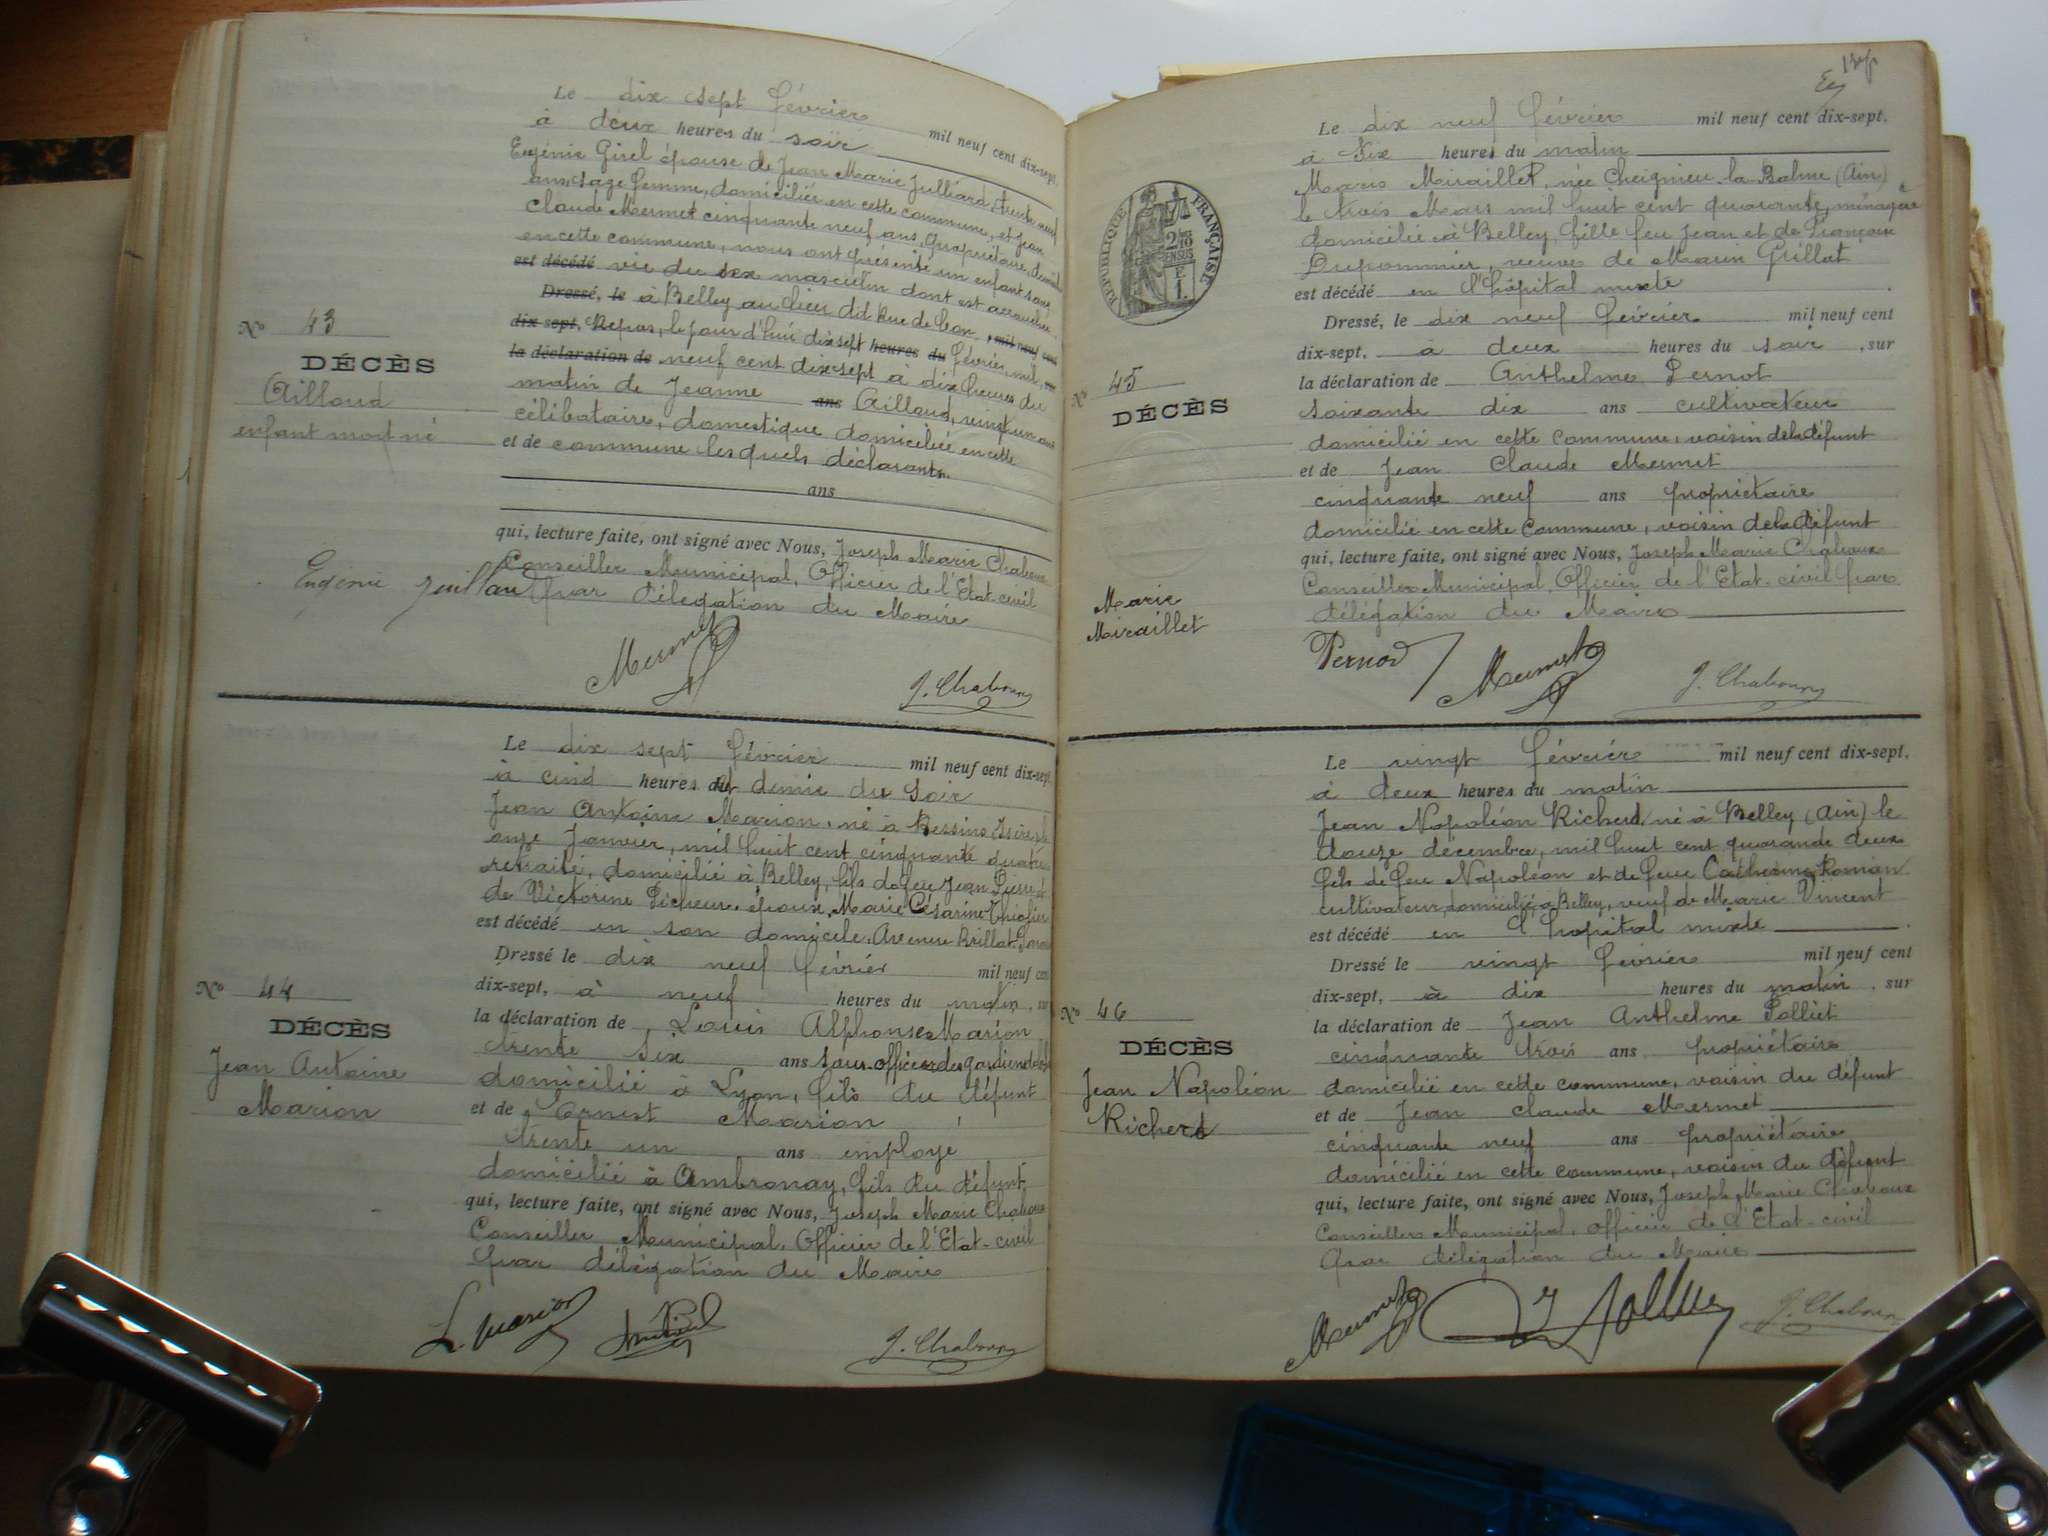 Le dix sept février mil neuf cent dix-sept.
à deux heures du soir
Eugénie Girel épouse de Jean Marie Julliard, trente neuf
ans, sage femme, domiciliée en cette commune, et Jean
Claude Mermet cinquante neuf ans, propriétaire, domicilié
en cette commune, nous ont présenté un enfant sans
est décédé vie du sex masculin dont est accouchée
Dressé, le à Belley au lieu dit Rue de bon
dix-sept, Repos, le jour d'hui dix sept heures du février, mil
la déclaration de neuf cent dix-sept à dix heures du
matin de Jeanne ans Aillaud, vingt un ans
célibataire, domestique domiciliée en cette
et de commune lesquels déclarants
ans
qui, lecture faite, ont signé avec Nous, Joseph Marie Chaboux
Conseiller Municipal, Officier de l'Etat-civil
par délégation du Maire
Nº 43
DÉCÈS
Aillaud
enfant mort né
Eugénie Juillard
Mermet
J. Chaboux
Le dix sept février mil neuf cent dix-sept.
à cinq heures et demie du soir
Jean Antoine Marion, né à Bessins Isère le
onze Janvier, mil huit cent cinquante quatre
retraité, domicilié à Belley, fils de feu Jean Pierre et
de Victorine Pécheur, époux Marie Césarine
est décédé en son domicile, Avenue Brillat
Dressé le dix neuf février mil neuf cent
dix-sept, à neuf heures du matin, sur
la déclaration de Louis Alphonse Marion
trente six ans sous-officier des gardiens
domicilié à Lyon, fils du défunt
et de Ernest Marion
trente un ans employé
domicilié à Ambronay, fils du défunt,
qui, lecture faite, ont signé avec Nous, Joseph Marie Chaboux
Conseiller Municipal, Officier de l'Etat-civil
par délégation du Maire
Nº 44
DÉCÈS
Jean Antoine
Marion
L. Marion
J. Chaboux
Le dix neuf février mil neuf cent dix-sept.
à Six heures du matin
Marie Miraillet, née Cheignieu-la-Balme (Ain)
le trois Mars mil huit cent quarante, ménagère
domicilié à Belley, fille feu Jean et de Françoise
Dupommier, veuve de Marin Grillat
est décédé en l'hôpital mixte
Dressé, le dix neuf février mil neuf cent
dix-sept, à deux heures du soir, sur
la déclaration de Anthelme Pernot
soixante dix ans cultivateur
domicilié en cette commune, voisin de la défunt
et de Jean Claude Mermet
cinquante neuf ans propriétaire
domicilié en cette commune, voisin de la défunt
qui, lecture faite, ont signé avec Nous, Joseph Marie Chaboux
Conseiller Municipal, Officier de l'Etat-civil par
délégation du Maire
RÉPUBLIQUE FRANÇAISE
Nº 45
DÉCÈS
Marie
Miraillet
Pernod
Mermet
J. Chaboux
Le vingt février mil neuf cent dix-sept.
à deux heures du matin
Jean Napoléon Richerd, né à Belley (Ain) le
douze décembre, mil huit cent quarante deux
fils de feu Napoléon et de feue Catherine Roman
cultivateur, domicilié à Belley, veuf de Marie Vincent
est décédé en l'hopital mixte
Dressé le vingt février mil neuf cent
dix-sept, à dix heures du matin, sur
la déclaration de Jean Anthelme Polliet
cinquante trois ans propriétaire
domicilié en cette commune, voisin du défunt
et de Jean Claude Mermet
cinquante neuf ans propriétaire
domicilié en cette commune, voisin du défunt
qui, lecture faite, ont signé avec Nous, Joseph Marie Chaboux
Conseiller Municipal, officier de l'Etat-civil
par délégation du Maire
Nº 46
DÉCÈS
Jean Napoléon
Richerd
Mermet
J. Chaboux